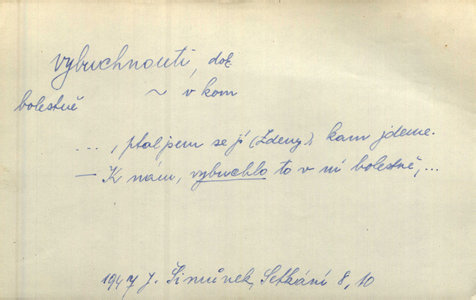 vybuchnouti, dok.
~ v kom
bolestně
..., ptal jsem se jí (Zdeny), kam jdeme.
— K nám, vybuchlo to v ní bolestně, ...
1947 J. Šimůnek, Setkání 8, 10